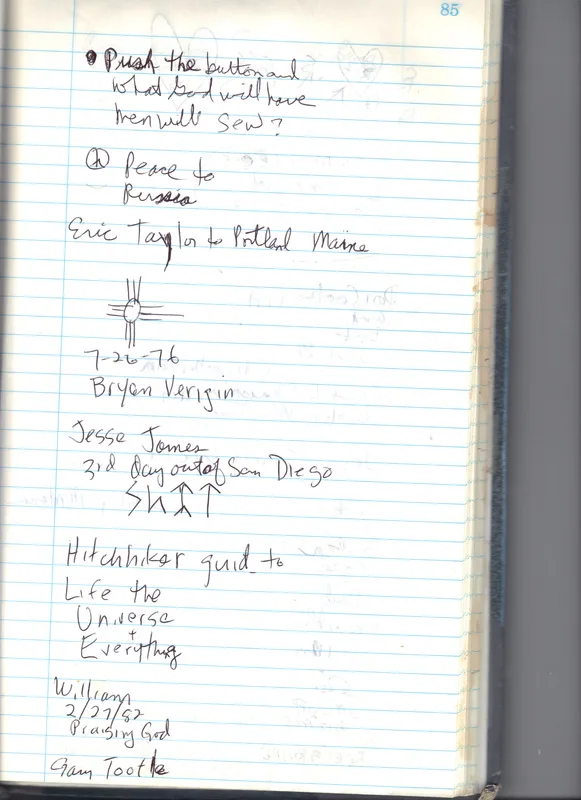 85
Push the button and
what God will have
men will sew?
Peace to
Russia
Eric Taylor to Portland Maine
7-26-76
Bryan Verigin
Jesse James
3rd day out of San Diego
Hitchhiker guid to
Life the
Universe
+
Everything
William
2/27/82
Praising God
Gary Tootle